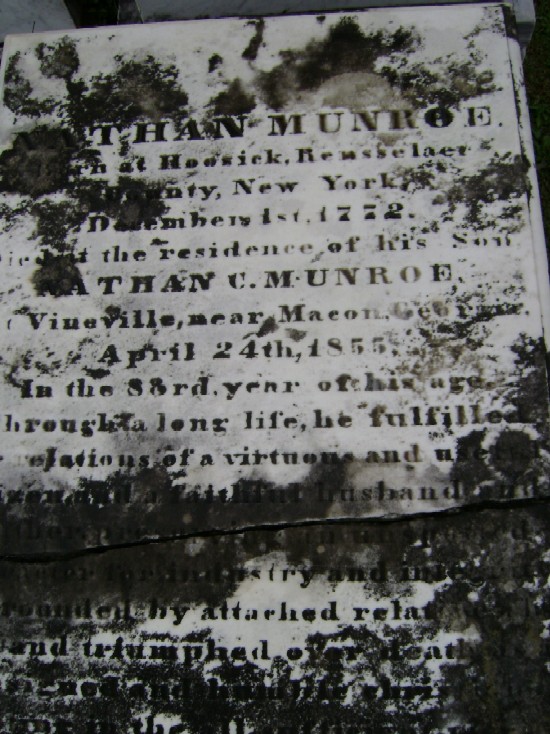 NATHAN MUNROE.
Born at Hoosick, Rensselaer
County, New York,
December 1st, 1772.
Died at the residence of his Son
NATHAN C. MUNROE,
Vineville, near Macon, Georgia.
April 24th, 1855.
In the 83rd, year of his age.
Through a long life, he fulfilled
relations of a virtuous and useful
and a faithful husband and
in
for industry and integrity
by attached
and triumphed over death
and humble
in the